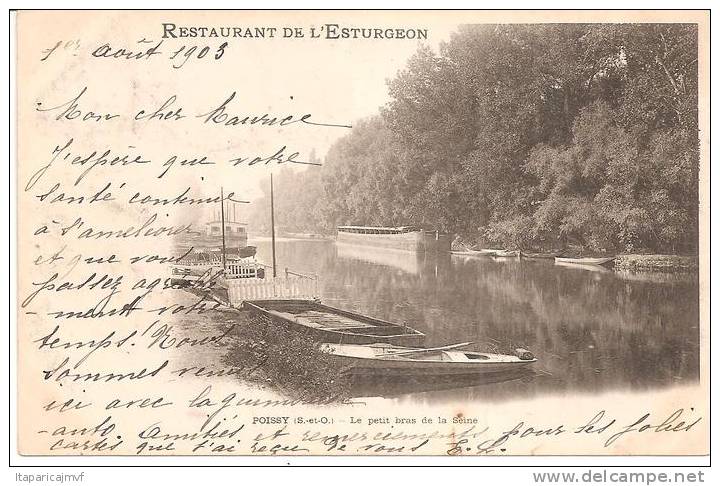 RESTAURANT DE L'ESTURGEON
1er Août 1903
Mon cher Maurice
J'espère que votre
santé continue
à s'améliorer
et que vous
passez agréable-
-ment votre
temps. Nous
sommes venus
ici avec la
-auto. Amitiés et remerciements pour les jolies
cartes que j'ai reçu de vous E. L.
POISSY (S.-et-O.) — Le petit bras de la Seine
Itaparicajmvf
www.delcampe.net